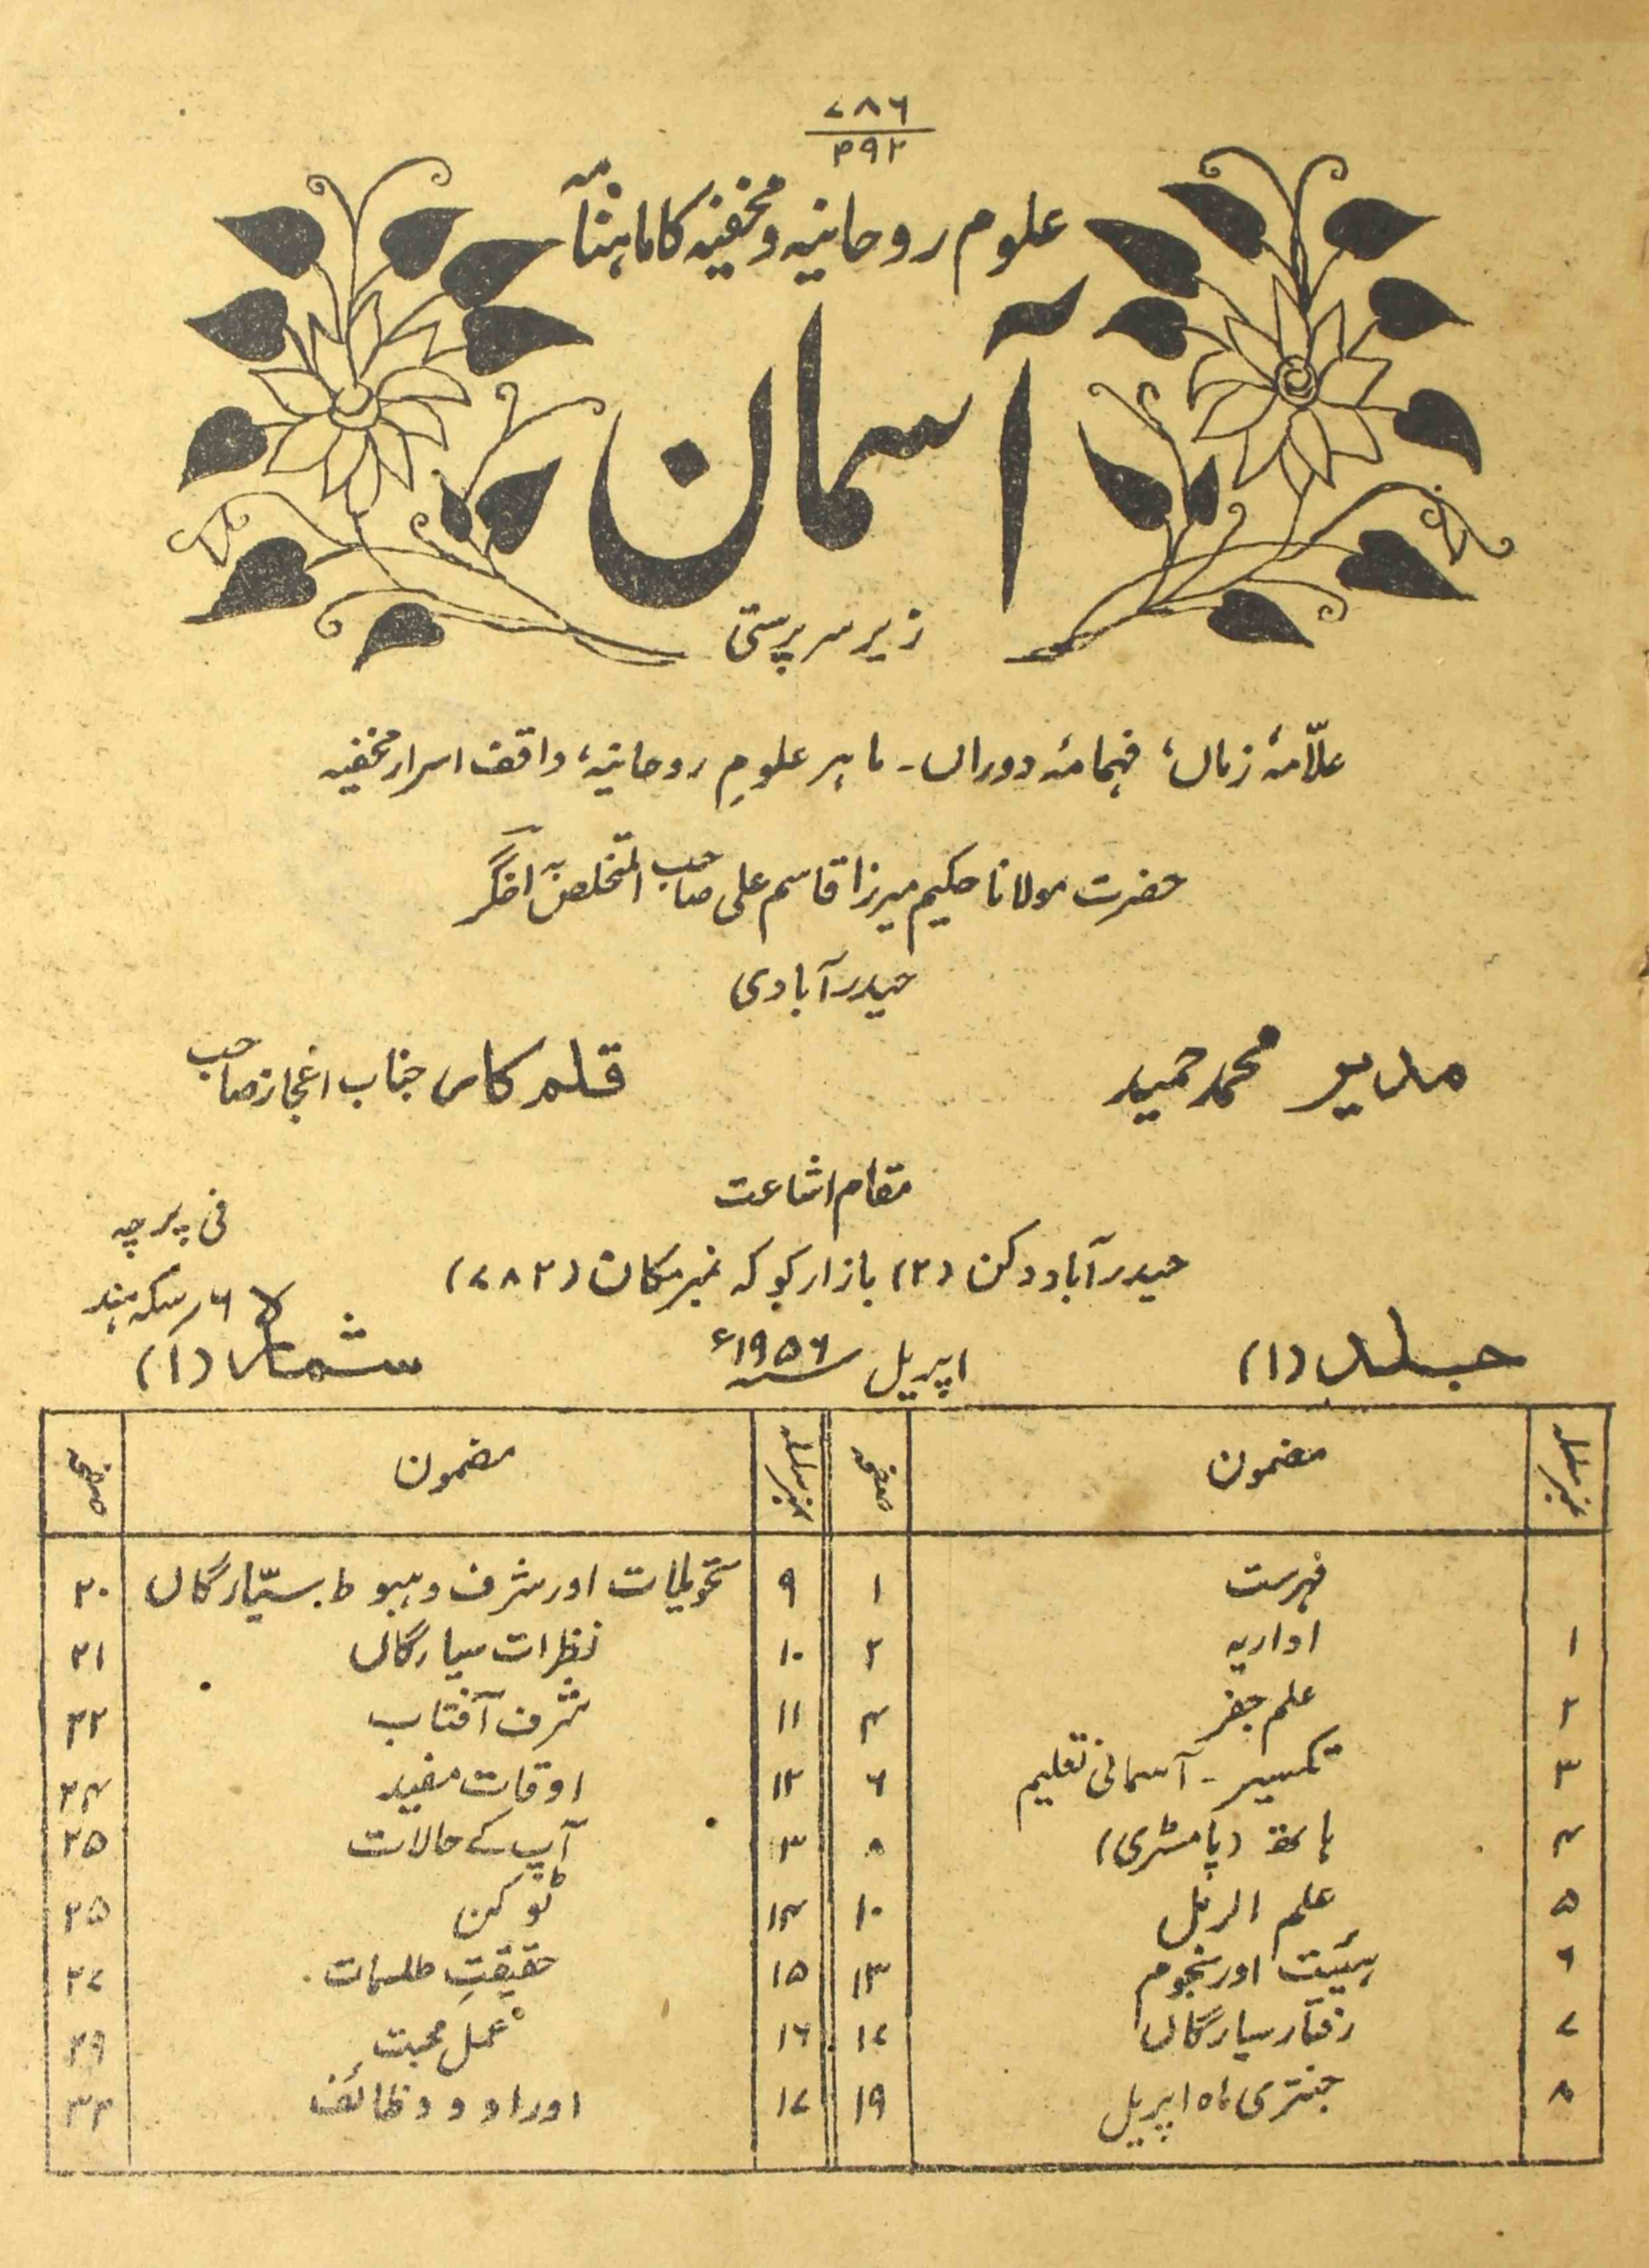 ۷۸۶
۳۹۲
علوم روحانیہ و مخفیہ کا ماہنامہ
آسمان
زیر سرپرستی
علّامۂ زماں، فہامۂ دوراں۔ ماہر علومِ روحانیہ، واقف اسرار مخفیہ
حضرت مولانا حکیم میرزا قاسم علی صاحب المتخلص بہ اخگر
حیدرآبادی
مدیر محمد حمید
قلمکار جناب اعجاز صاحب
مقام اشاعت
حیدرآباد دکن (۲) بازار کوکہ نمبر مکان (۷۸۲)
فی پرچہ
۶؍ سکہ ہند
جلد (۱)
اپریل ۱۹۵۶ء
شمارہ (۱)
نمبر سلسلہ مضمون صفحہ نمبر سلسلہ مضمون صفحہ
فہرست ۱ ۹ تحویلات اور شرف و ہبوط سیّارگاں ۲۰
۱ اداریہ ۲ ۱۰ نظرات سیارگاں ۲۱
۲ علم جفر ۴ ۱۱ شرف آفتاب ۲۲
۳ تکسیر۔ آسمانی تعلیم ۶ ۱۲ اوقات مفید ۲۴
۴ ہاتھ (پامسٹری) ۸ ۱۳ آپ کے حالات ۲۵
۵ علم الرمل ۱۰ ۱۴ ٹوکن ۲۵
۶ ہیئیت اور نجوم ۱۳ ۱۵ حقیقتِ طلسمات ۲۷
۷ رفتار سیارگاں ۱۷ ۱۶ عملِ محبت ۲۹
۸ جنتری ماہ اپریل ۱۹ ۱۷ اوراد و وظائف ۳۲